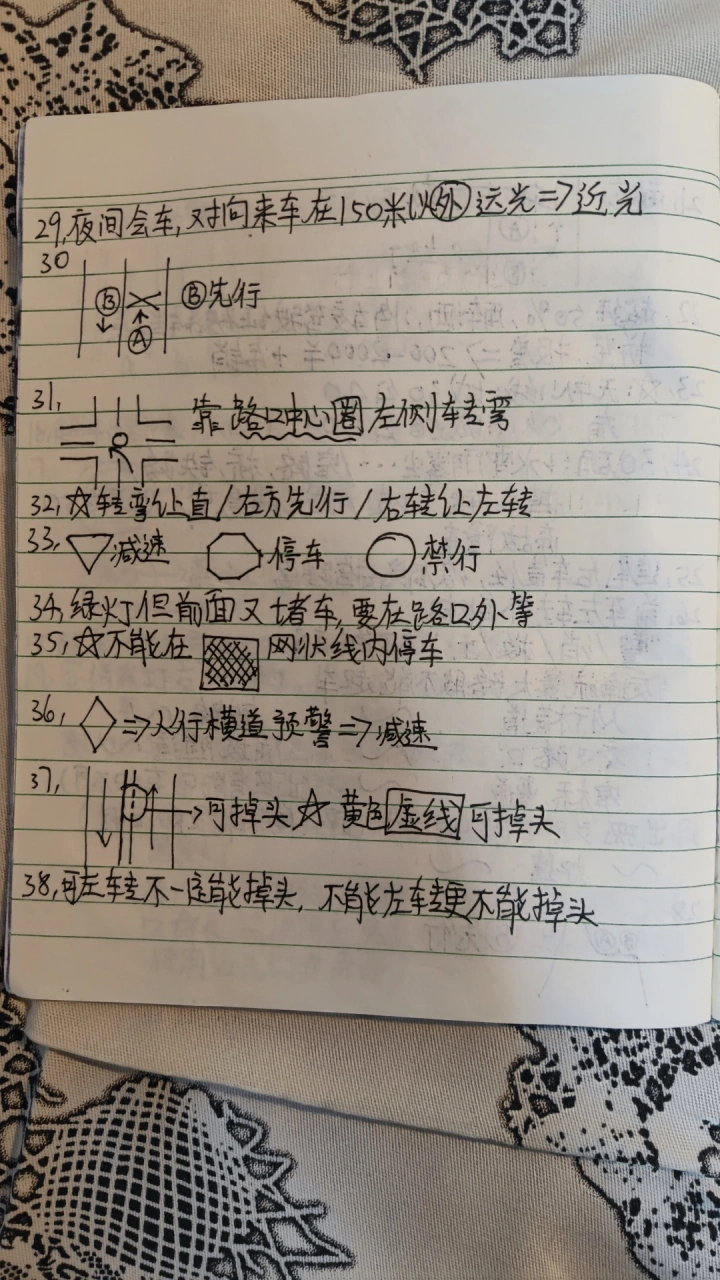 29,夜间会车,对向来车在150米以外 远光=>近光
30
B A B先行
31, 靠路口中心圈左侧转弯
32,☆转弯让直/右方先行/右转让左转
33, 减速 停车 禁行
34,绿灯但前面又堵车,要在路口外等
35,☆不能在 网状线内停车
36, =>人行横道预警=>减速
37, →可掉头☆ 黄色虚线可掉头
38,可左转不一定能掉头,不能左转更不能掉头